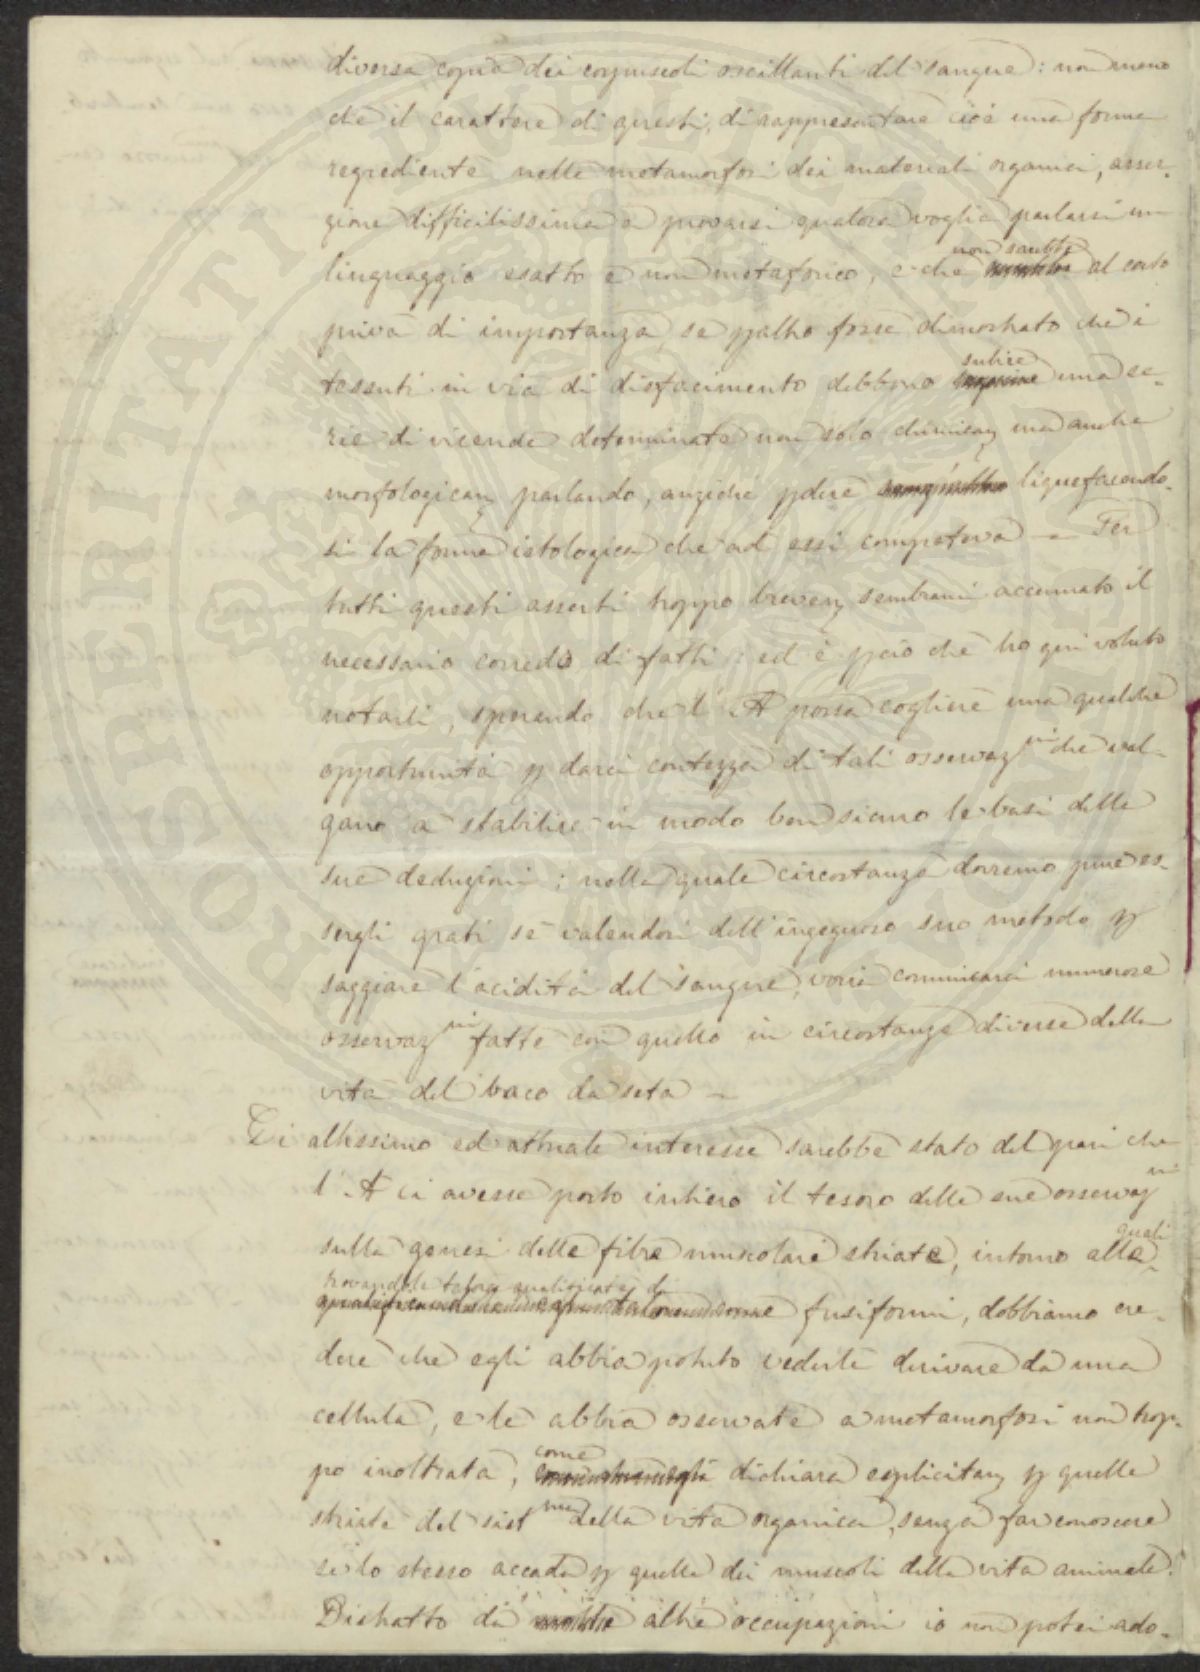 diversa copia dei corpuscoli oscillanti del sangue: non meno
che il carattere di questi, di rappresentare cioè una forma
regrediente nelle metamorfosi dei materiali organici, asser-
zione difficilissima a provarsi qualora voglia parlarsi un
linguaggio esatto e non metaforico, e che non sarebbe al certo
priva di importanza se p altro fosse dimostrato che i
tessuti in via di disfacimento debbono subire una se-
rie di vicende determinate non solo chimicam ma anche
morfologicam parlando, anziché pdere liquefacendo-
si la forma istologica che ad essi competeva — Per
tutti questi asserti troppo brevem sembrami accennato il
necessario corredo di fatti: ed è pciò che ho qui voluto
notarli, sperando che l'A possa cogliere una qualche
opportunità p darci contezza di tali osservaz ni che val-
gano a stabilire in modo ben sicuro le basi delle
sue deduzioni; nella quale circostanza dovremo pure es-
sergli grati se valendosi dell'ingegnoso suo metodo p
saggiare l'acidità del sangue, vorrà comunicarci numerose
osservaz ni fatte con quello in circostanze diverse della
vita del baco da seta —
Di altissimo ed attuale interesse sarebbe stato del pari che
l'A ci avesse porto intiero il tesoro delle sue osservaz ni
sulla genesi delle fibre muscolari striate, intorno alle quali
trovandole talora qualificate di fusiformi, dobbiamo cre-
dere che egli abbia potuto vederle derivare da una
cellula, e le abbia osservate a metamorfosi non trop-
po inoltrata, come dichiara esplicitam p quelle
striate del sist ma della vita organica, senza far conoscere
se lo stesso accada p quelle dei muscoli della vita animale.
Distratto da altre occupazioni io non potei ado-